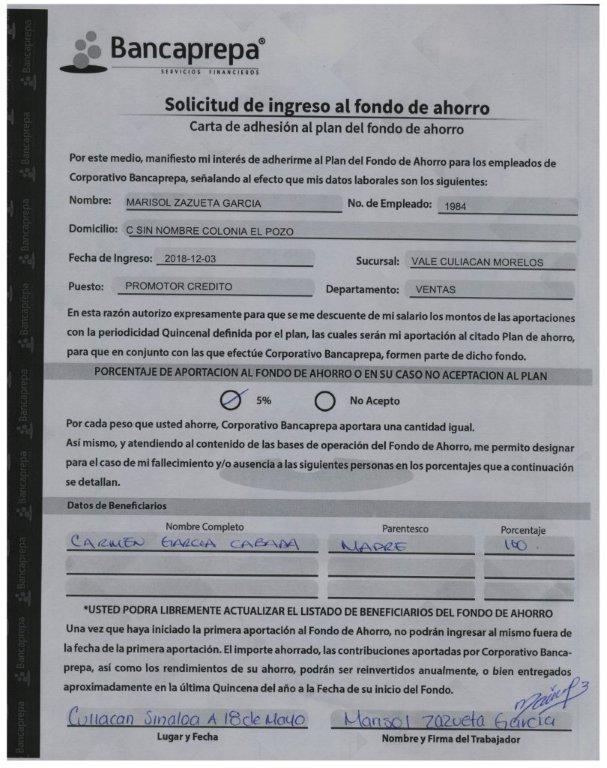 Bancaprepa®
SERVICIOS FINANCIEROS
Solicitud de ingreso al fondo de ahorro
Carta de adhesión al plan del fondo de ahorro
Por este medio, manifiesto mi interés de adherirme al Plan del Fondo de Ahorro para los empleados de
Corporativo Bancaprepa, señalando al efecto que mis datos laborales son los siguientes:
Nombre: MARISOL ZAZUETA GARCIA No. de Empleado: 1984
Domicilio: C SIN NOMBRE COLONIA EL POZO
Fecha de Ingreso: 2018-12-03 Sucursal: VALE CULIACAN MORELOS
Puesto: PROMOTOR CREDITO Departamento: VENTAS
En esta razón autorizo expresamente para que se me descuente de mi salario los montos de las aportaciones
con la periodicidad Quincenal definida por el plan, las cuales serán mi aportación al citado Plan de ahorro,
para que en conjunto con las que efectúe Corporativo Bancaprepa, formen parte de dicho fondo.
PORCENTAJE DE APORTACION AL FONDO DE AHORRO O EN SU CASO NO ACEPTACION AL PLAN
5% No Acepto
Por cada peso que usted ahorre, Corporativo Bancaprepa aportara una cantidad igual.
Así mismo, y atendiendo al contenido de las bases de operación del Fondo de Ahorro, me permito designar
para el caso de mi fallecimiento y/o ausencia a las siguientes personas en los porcentajes que a continuación
se detallan.
Datos de Beneficiarios
Nombre Completo Parentesco Porcentaje
CARMEN GARCIA MADRE 100
*USTED PODRA LIBREMENTE ACTUALIZAR EL LISTADO DE BENEFICIARIOS DEL FONDO DE AHORRO
Una vez que haya iniciado la primera aportación al Fondo de Ahorro, no podrán ingresar al mismo fuera de
la fecha de la primera aportación. El importe ahorrado, las contribuciones aportadas por Corporativo Banca-
prepa, así como los rendimientos de su ahorro, podrán ser reinvertidos anualmente, o bien entregados
aproximadamente en la última Quincena del año a la Fecha de su inicio del Fondo.
Culiacan Sinaloa A 18 de Mayo Marisol Zazueta García
Lugar y Fecha Nombre y Firma del Trabajador